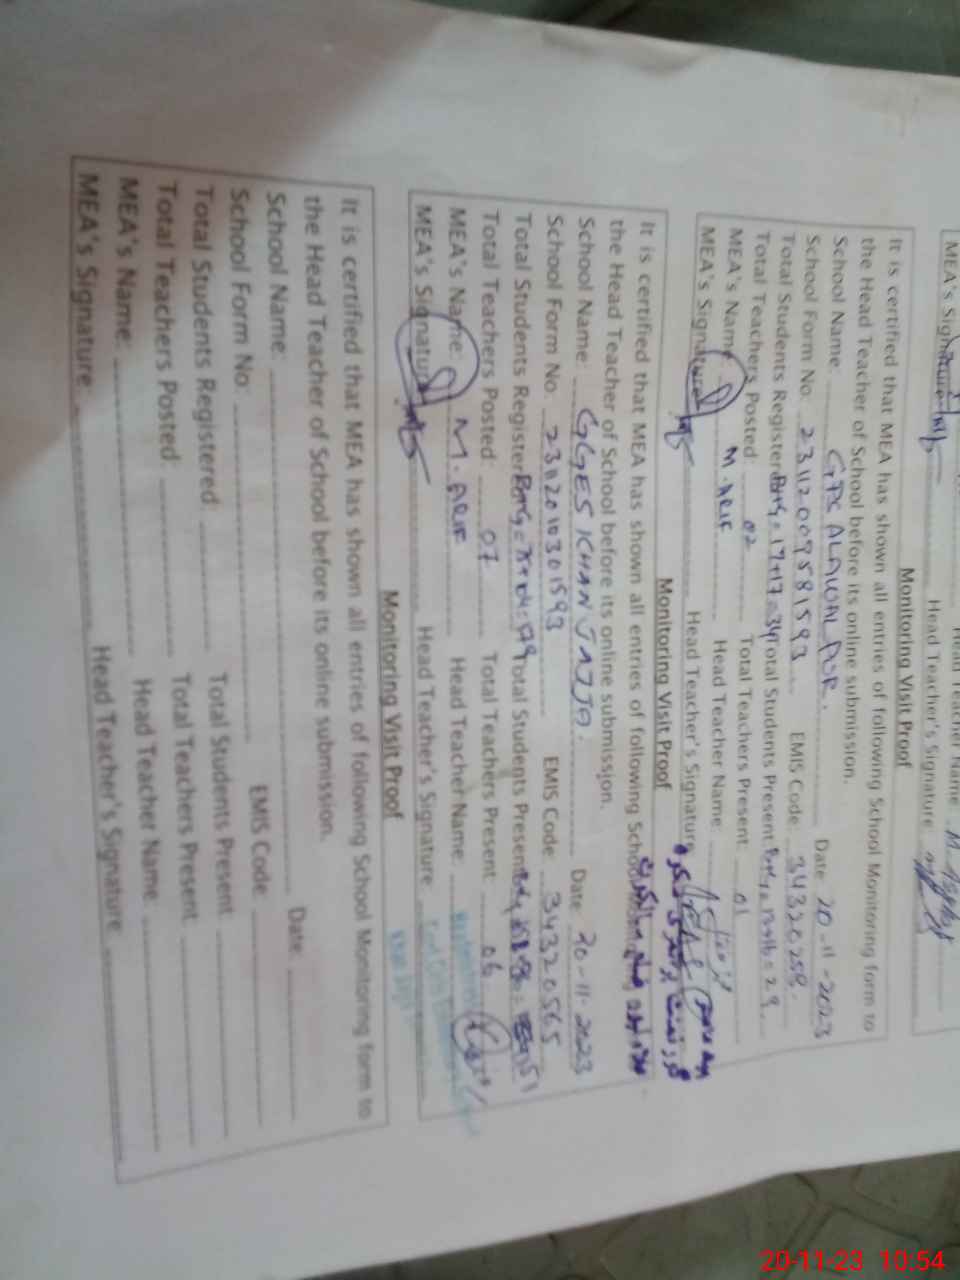 MEA's Signature Head Teacher's Signature
Monitoring Visit Proof
It is certified that MEA has shown all entries of following School Monitoring form to
the Head Teacher of School before its online submission.
School Name: GPS ALAWAL POR. Date 20-11-2023
School Form No. 23112009581593 EMIS Code: 34320258.
Total Students Registered B+G=17+17=34 Total Students Present B+G=13+16=29
Total Teachers Posted: 02 Total Teachers Present 01
MEA's Name: M.ARIF Head Teacher Name:
MEA's Signature Head Teacher's Signature
Monitoring Visit Proof
It is certified that MEA has shown all entries of following School
the Head Teacher of School before its online submission.
School Name: GGES KHAN JAJJA. Date 20-11-2023
School Form No. 23112010301593 EMIS Code: 34320565
Total Students Registered Total Students Present 51
Total Teachers Posted: 07 Total Teachers Present: 06
MEA's Name: M.ARIF Head Teacher Name:
MEA's Signature Head Teacher's Signature
Monitoring Visit Proof
It is certified that MEA has shown all entries of following School Monitoring form to
the Head Teacher of School before its online submission.
School Name: Date:
School Form No. EMIS Code:
Total Students Registered Total Students Present
Total Teachers Posted: Total Teachers Present
MEA's Name: Head Teacher Name:
MEA's Signature: Head Teacher's Signature
20-11-23 10:54